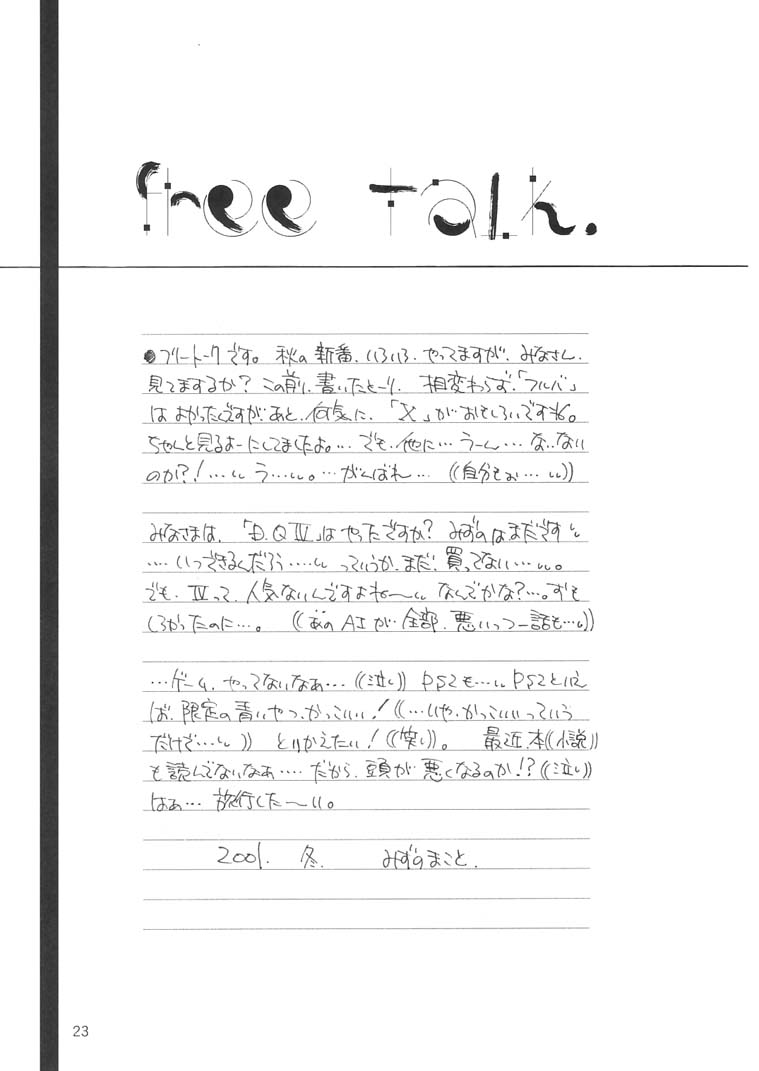 free talk.
●フリートークです。秋の新番、いろいろ、やってますが、みなさん、
見てまするか?この前、書いたとーり、相変わらず、「フルバ」
はよかったんですが、あと、何気に、「X」がおもしろいですね。
ちゃんと見るよーにしてましたよ。…でも、他に…うーん…な..ない
のか?!…うぅ…。…がんばれ…((自分もぉ…))
みなさまは、「D.Q Ⅳ」はやったですか?みずのはまだです
….いつできるんだろう….. っていうか、まだ、買ってない…。
でも、Ⅳって、人気ないんですよねぇ〜 なんでかな?…。おも
しろかったのに…。((あのAIが、全部、悪いっつー話も…))
…ゲーム、やってないなぁ…((泣い)) PS2も… PS2といえ
ば、限定の青いやつ、かっこいい!((…いや、かっこいいっていう
だけど…)) とりかえたい!((笑い))。 最近、本((小説))
も読んでないなぁ….だから、頭が悪くなるのか!?((泣い))
はぁ…旅行した〜い。
2001. 冬. みずのまこと.
23